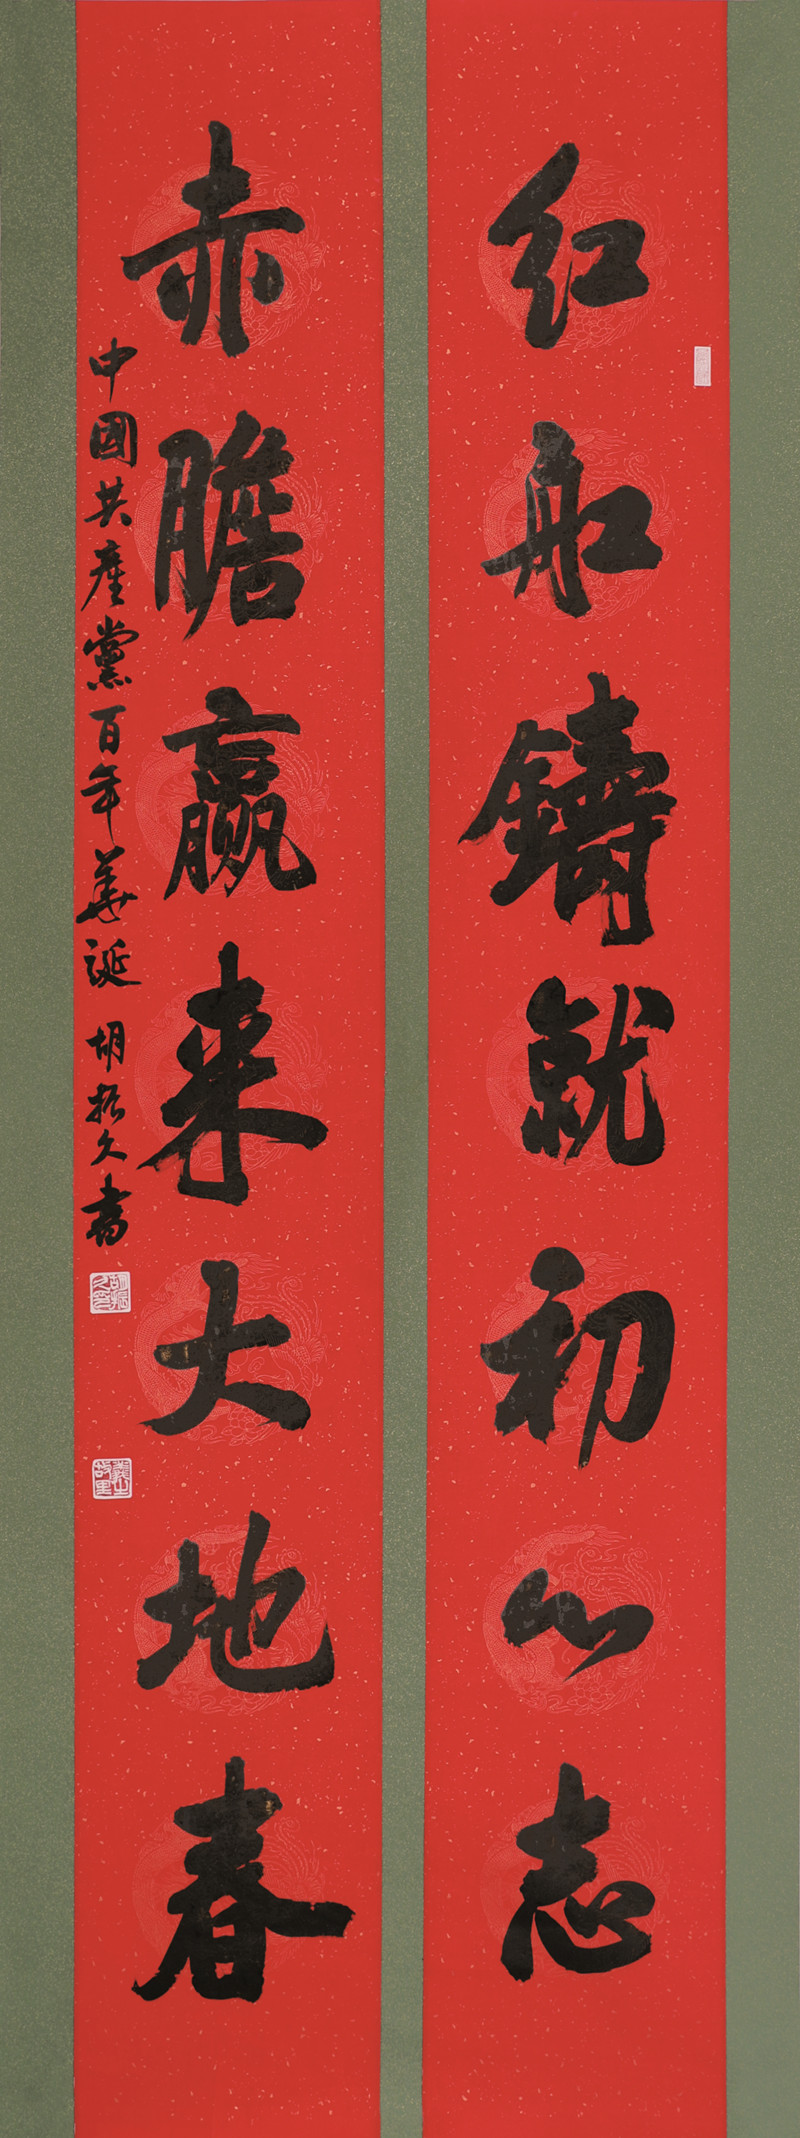 红船鑄就初心志
赤膽赢来大地春
中國共產黨百年華誕 胡振久書
胡振久印